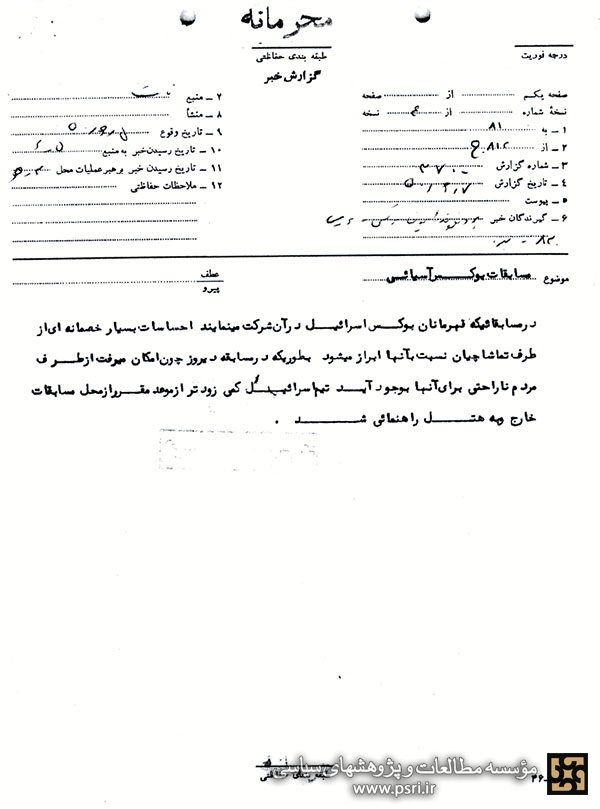 محرمانه
طبقه بندی حفاظتی
گزارش خبر
درجه فوریت
صفحه یکم از صفحه
نسخهٔ شماره از نسخه
۱ ـ به ۸۱
۲ ـ از
۳ ـ شماره گزارش
۴ ـ تاریخ گزارش
۵ ـ پیوست
۶ ـ گیرندگان خبر
۷ ـ منبع
۸ ـ منشأ
۹ ـ تاریخ وقوع
۱۰ ـ تاریخ رسیدن خبر به منبع
۱۱ ـ تاریخ رسیدن خبر برهبر عملیات محل
۱۲ ـ ملاحظات حفاظتی
موضوع مسابقات بوکس آسیائی
عطف
پیرو
در مسابقاتیکه قهرمانان بوکس اسرائیل در آن شرکت مینمایند احساسات بسیار خصمانه ای از
طرف تماشاچیان نسبت بآنها ابراز میشود بطوریکه در مسابقه دیروز چون امکان میرفت از طرف
مردم ناراحتی برای آنها بوجود آید تیم اسرائیل کمی زودتر از موعد مقرر از محل مسابقات
خارج وبه هتل راهنمائی شد .
طبقه بندی حفاظتی
مؤسسه مطالعات و پژوهشهای سیاسی
www.psri.ir